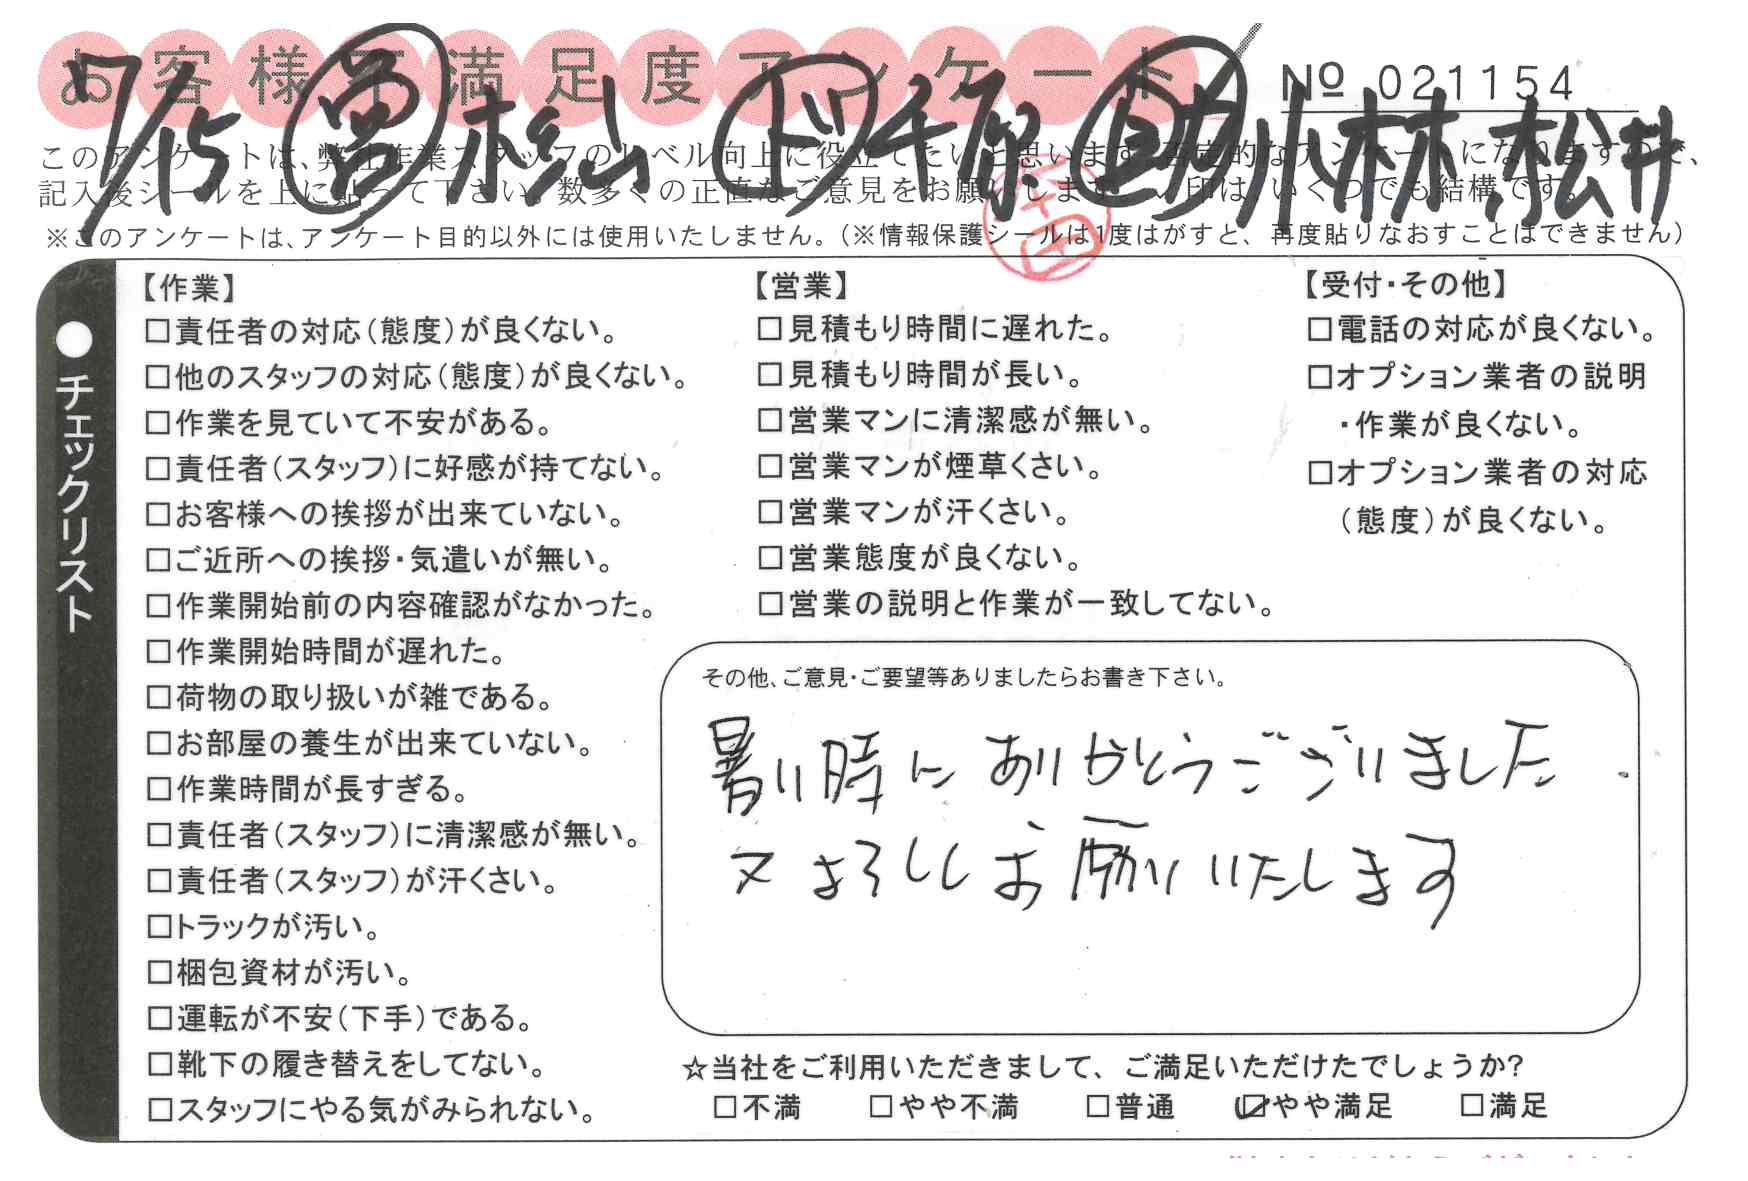 お客様不満足度アンケート
№ 021154
7/15 営 杉山 ド 千原 助 小林 松井
このアンケートは、弊社作業スタッフのレベル向上に役立てたいと思います。否定的なアンケートになりますので、
記入後シールを上に貼って下さい。数多くの正直なご意見をお願いします。✓印は、いくつでも結構です。
※このアンケートは、アンケート目的以外には使用いたしません。（※情報保護シールは1度はがすと、再度貼りなおすことはできません）
●チェックリスト
【作業】
□責任者の対応（態度）が良くない。
□他のスタッフの対応（態度）が良くない。
□作業を見ていて不安がある。
□責任者（スタッフ）に好感が持てない。
□お客様への挨拶が出来ていない。
□ご近所への挨拶・気遣いが無い。
□作業開始前の内容確認がなかった。
□作業開始時間が遅れた。
□荷物の取り扱いが雑である。
□お部屋の養生が出来ていない。
□作業時間が長すぎる。
□責任者（スタッフ）に清潔感が無い。
□責任者（スタッフ）が汗くさい。
□トラックが汚い。
□梱包資材が汚い。
□運転が不安（下手）である。
□靴下の履き替えをしてない。
□スタッフにやる気がみられない。
【営業】
□見積もり時間に遅れた。
□見積もり時間が長い。
□営業マンに清潔感が無い。
□営業マンが煙草くさい。
□営業マンが汗くさい。
□営業態度が良くない。
□営業の説明と作業が一致してない。
【受付・その他】
□電話の対応が良くない。
□オプション業者の説明
・作業が良くない。
□オプション業者の対応
（態度）が良くない。
その他、ご意見・ご要望等ありましたらお書き下さい。
暑い時に ありがとうございました
又よろしくお願いいたします
☆当社をご利用いただきまして、ご満足いただけたでしょうか?
□不満 □やや不満 □普通 ☑やや満足 □満足